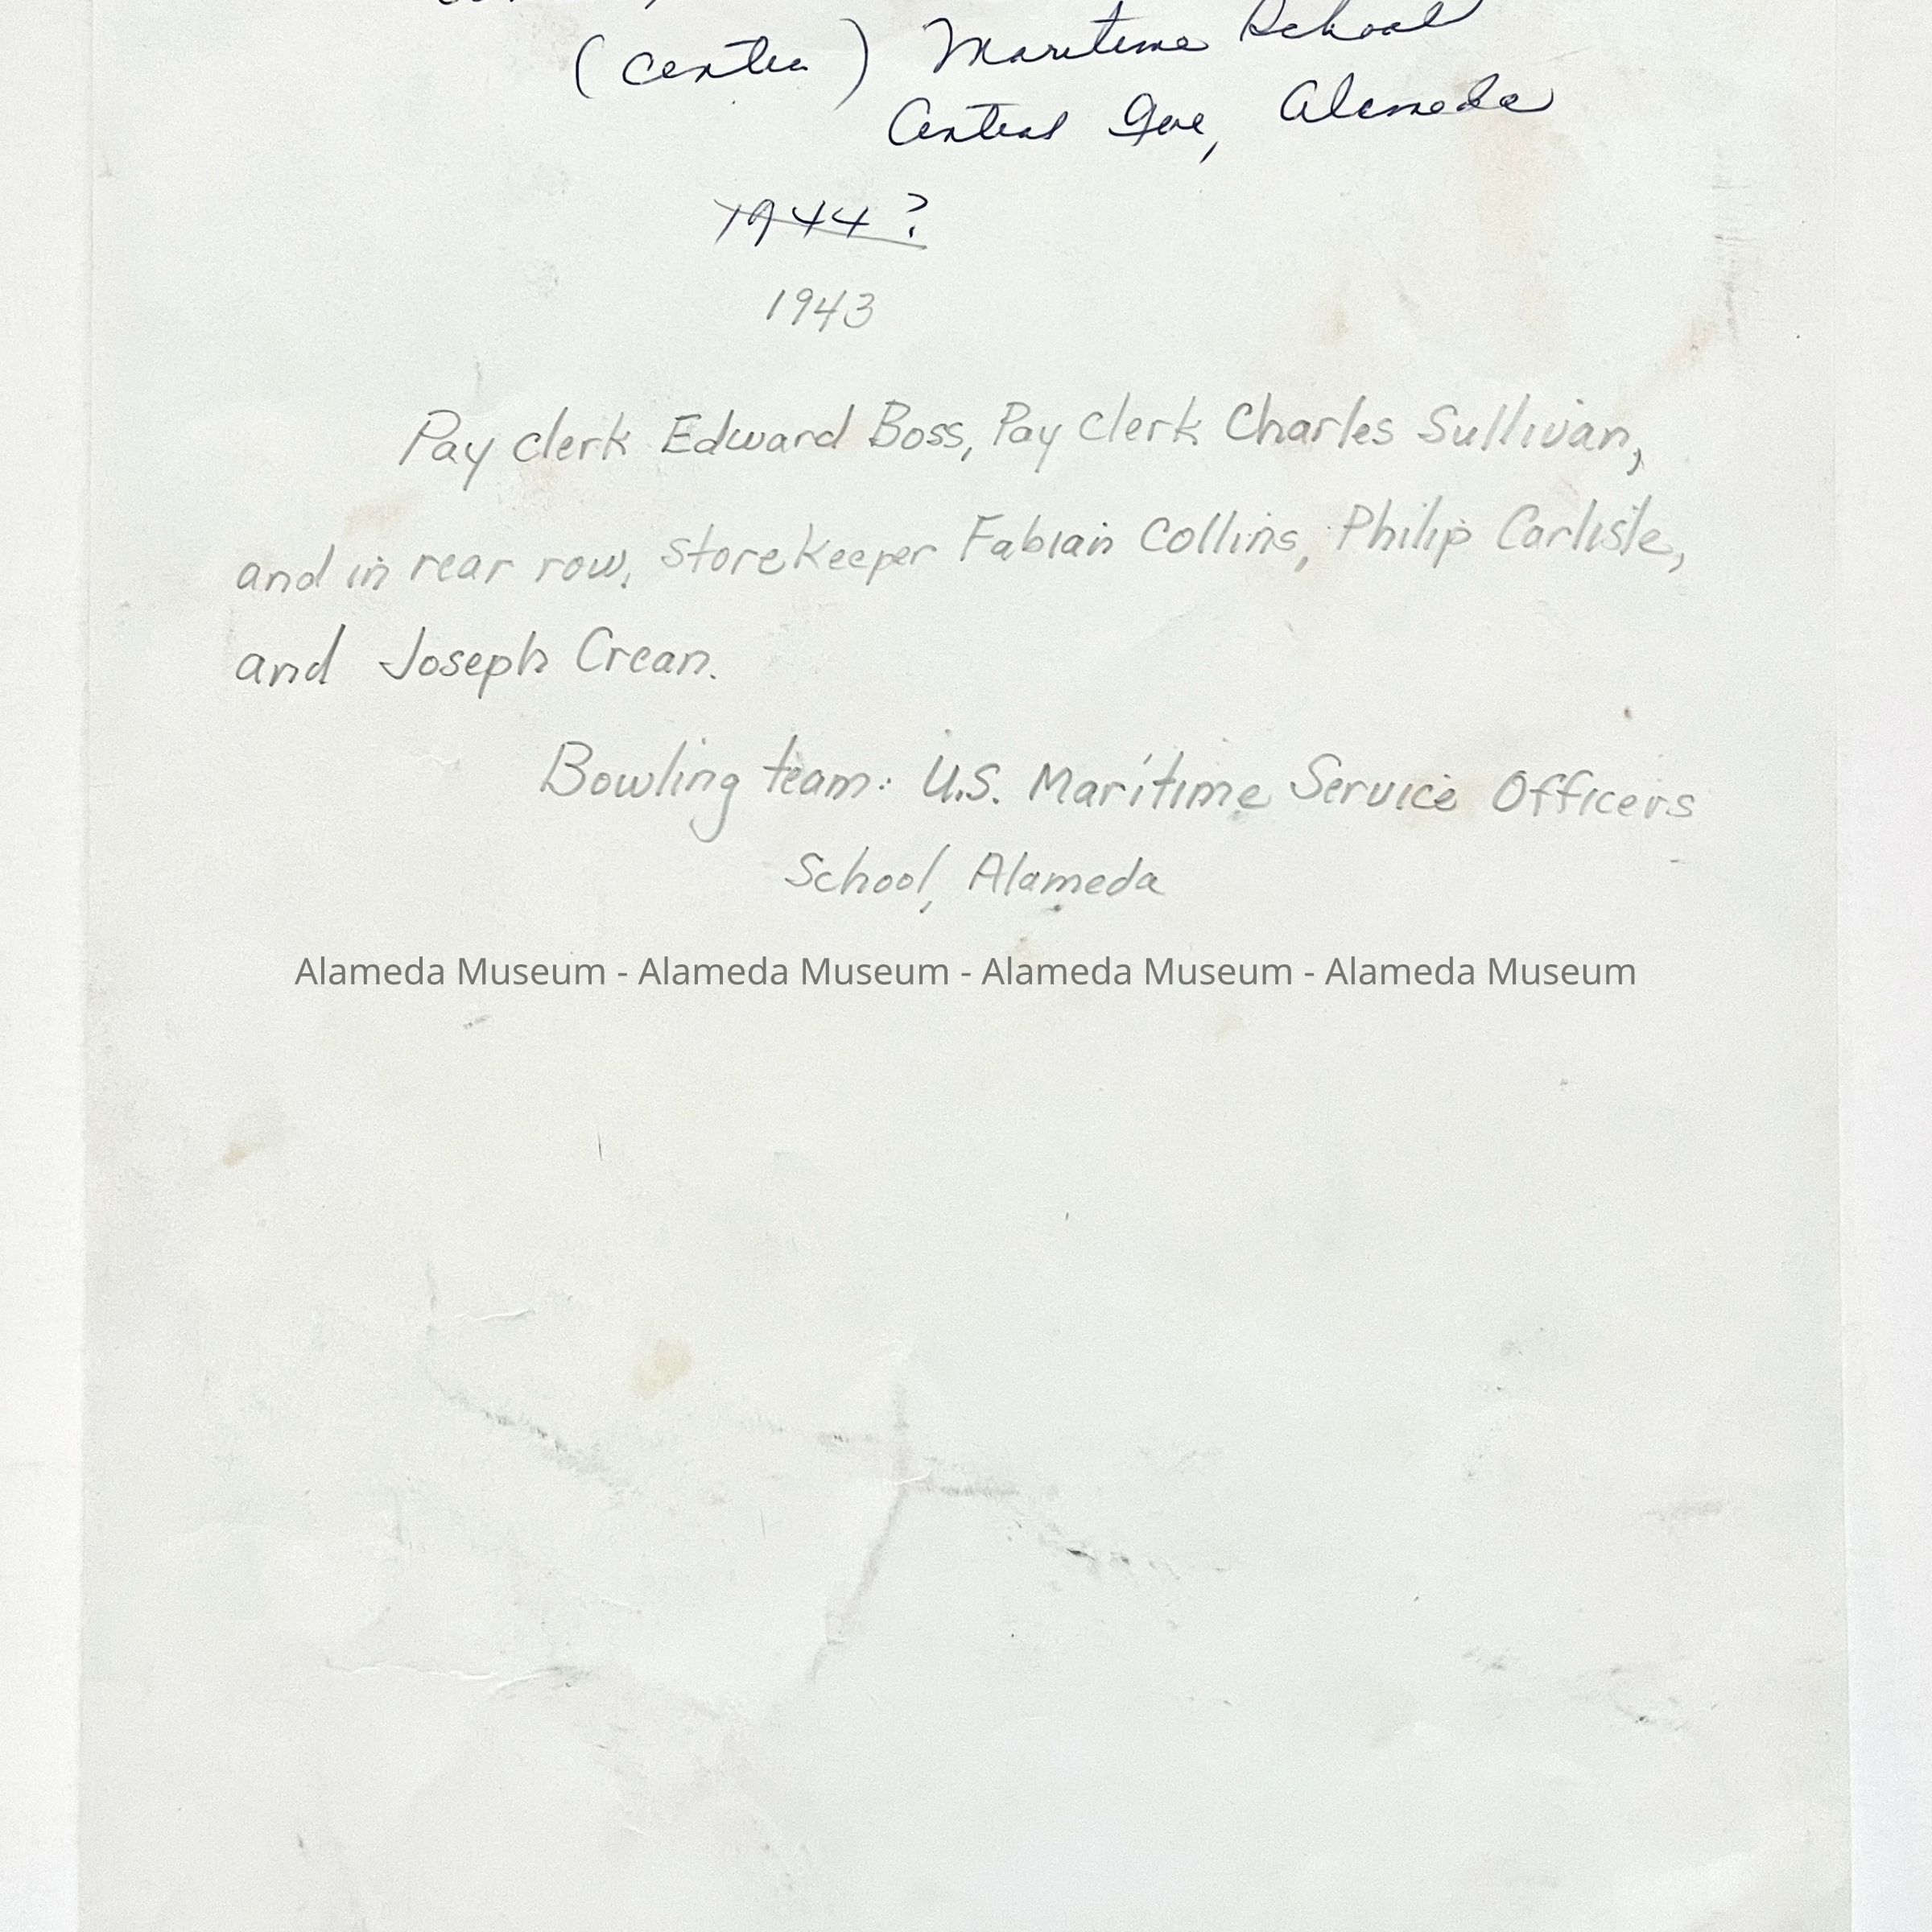 (Center) Maritime School
Central Ave, Alameda
1944?
1943
Pay clerk Edward Boss, Pay clerk Charles Sullivan,
and in rear row, storekeeper Fabian Collins, Philip Carlisle,
and Joseph Crean.
Bowling team: U.S. Maritime Service Officers
School, Alameda
Alameda Museum - Alameda Museum - Alameda Museum - Alameda Museum